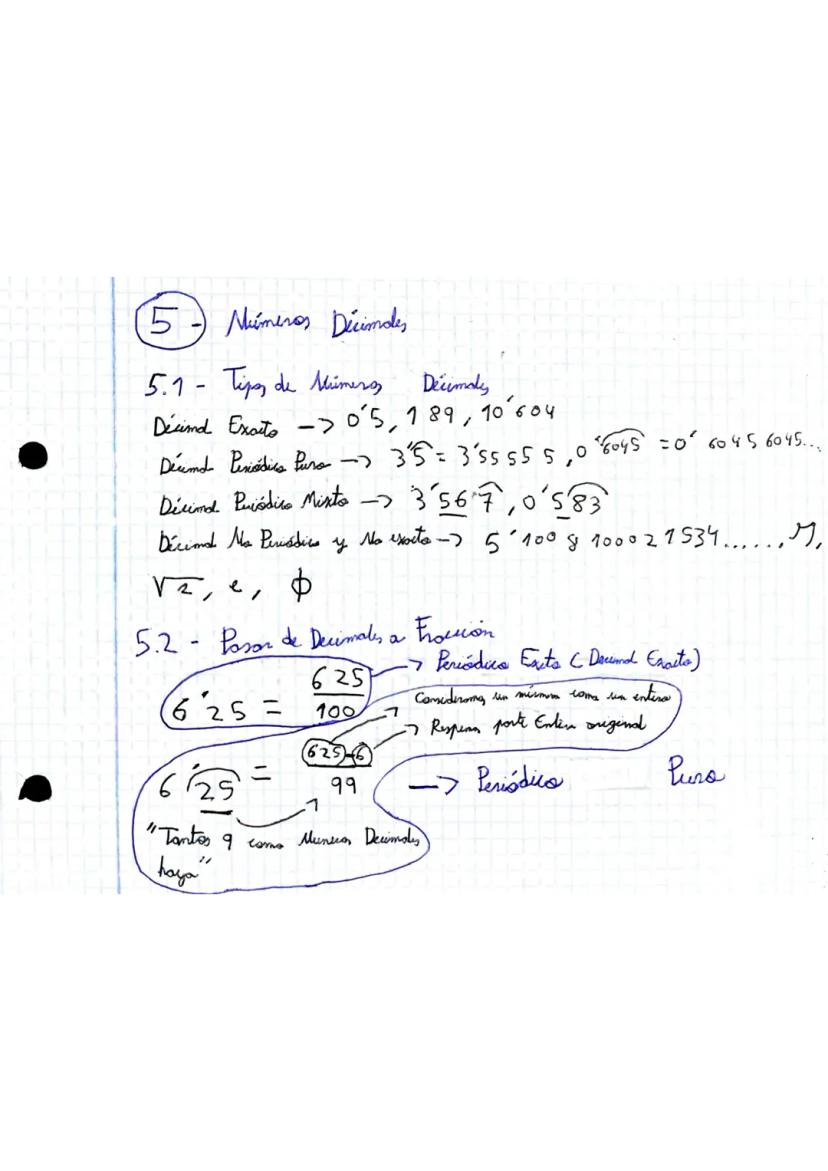 5 - Números Décimales
5.1 - Tipos de Números Décimales
Décimal Exacto -> 0'5, 189, 10'604
Décimal Periódico Puro -> 3'5 = 3'55555, 0'6045 = 0'60456045...
Décimal Periódico Mixto -> 3'567, 0'583
Décimal No Periódico y No exacto -> 5'1008100021534......,
√2, e, ϕ
5.2 - Pasar de Decimales a Fracción
-> Periódico Exato (Decimal Exacto)
6'25 = 625/100
Consideramos un número como un entero
-> parte Entera original
6'25 = 625-6/99
-> Periódico Puro
"Tantos 9 como Números Decimales
haya"